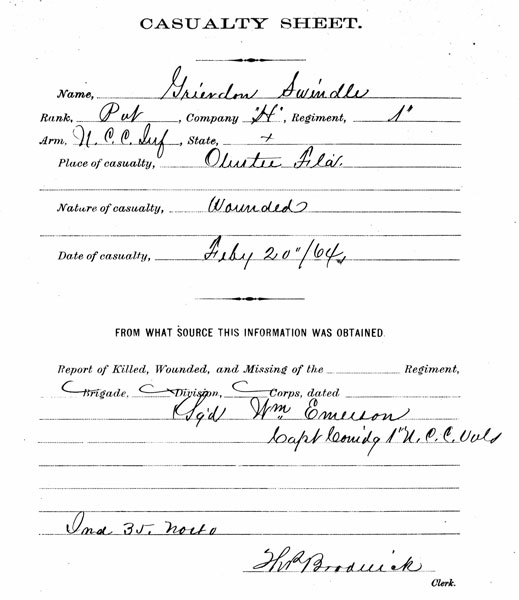 CASUALTY SHEET.
Name, Grierdon Swindle
Rank, Pvt, Company "H", Regiment, 1"
Arm, N. C. C. Inf, State, +
Place of casualty, Olustee Fla.
Nature of casualty, Wounded
Date of casualty, Feby 20"/64
FROM WHAT SOURCE THIS INFORMATION WAS OBTAINED.
Report of Killed, Wounded, and Missing of the Regiment,
Brigade, Division, Corps, dated
Sg'd Wm Emerson
Capt Comdg 1" N. C. C. Vols
Ind 35.
Broderick
Clerk.